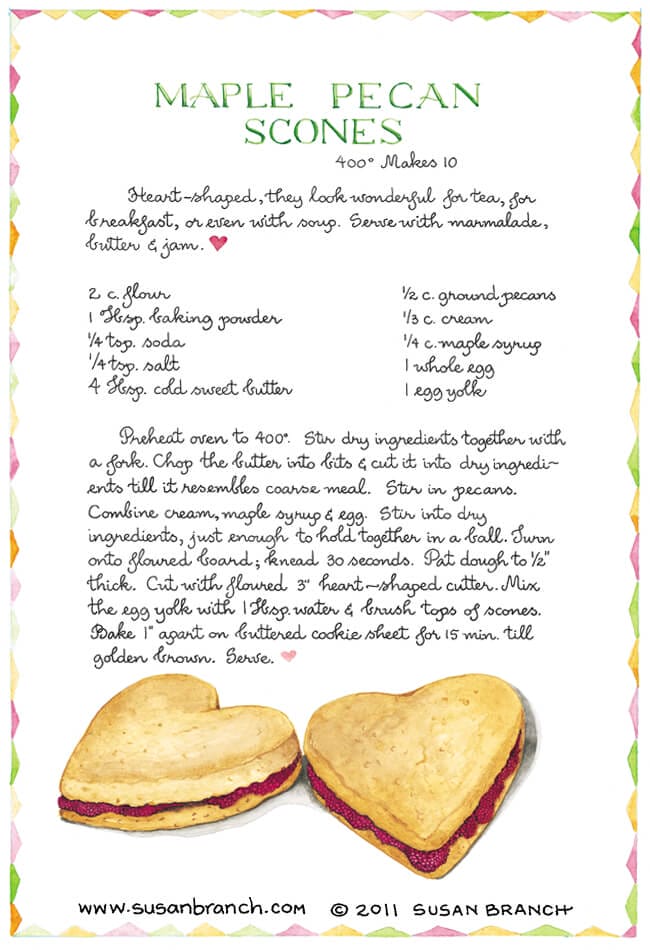 MAPLE PECAN
SCONES
400° Makes 10
Heart-shaped, they look wonderful for tea, for
breakfast, or even with soup. Serve with marmalade,
butter & jam.
2 c. flour
1 Tbsp. baking powder
1/4 tsp. soda
1/4 tsp. salt
4 Tbsp. cold sweet butter
1/2 c. ground pecans
1/3 c. cream
1/4 c. maple syrup
1 whole egg
1 egg yolk
Preheat oven to 400°. Stir dry ingredients together with
a fork. Chop the butter into bits & cut it into dry ingredi~
ents till it resembles coarse meal. Stir in pecans.
Combine cream, maple syrup & egg. Stir into dry
ingredients, just enough to hold together in a ball. Turn
onto floured board; knead 30 seconds. Pat dough to 1/2"
thick. Cut with floured 3" heart-shaped cutter. Mix
the egg yolk with 1 Tbsp. water & brush tops of scones.
Bake 1" apart on buttered cookie sheet for 15 min. till
golden brown. Serve.
www.susanbranch.com © 2011 SUSAN BRANCH